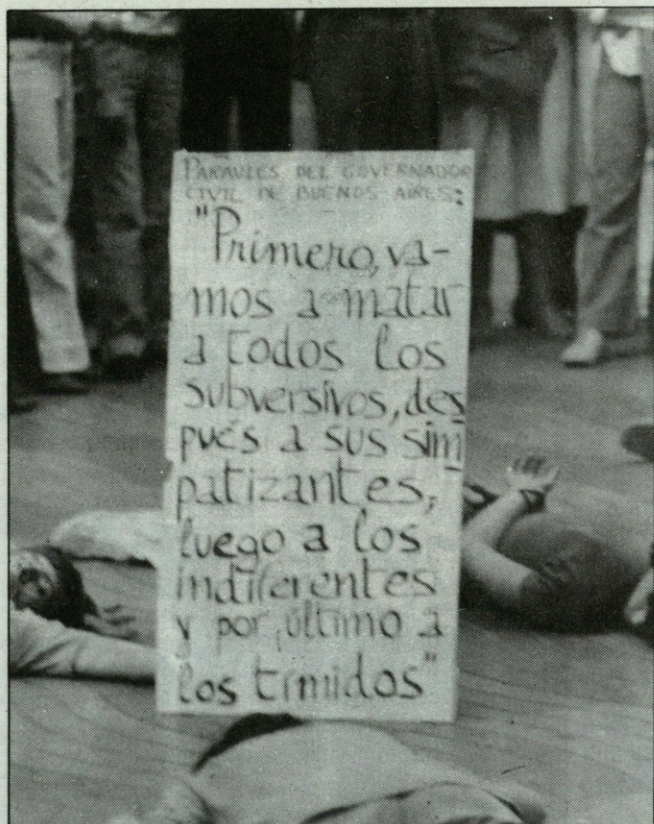 PARAULES DEL GOVERNADOR
CIVIL DE BUENOS AIRES:
"Primero, va-
mos a matar
a todos los
subversivos, des
pués a sus sim
patizantes,
luego a los
indiferentes
y por último a
los tímidos"